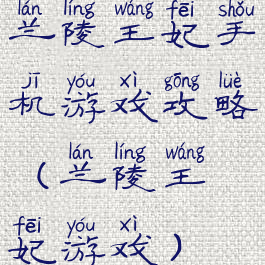 lán líng wáng fēi shǒu
兰陵王妃手
jī yóu xì gōng lüè
机游戏攻略
lán líng wáng
(兰陵王
fēi yóu xì
妃游戏)